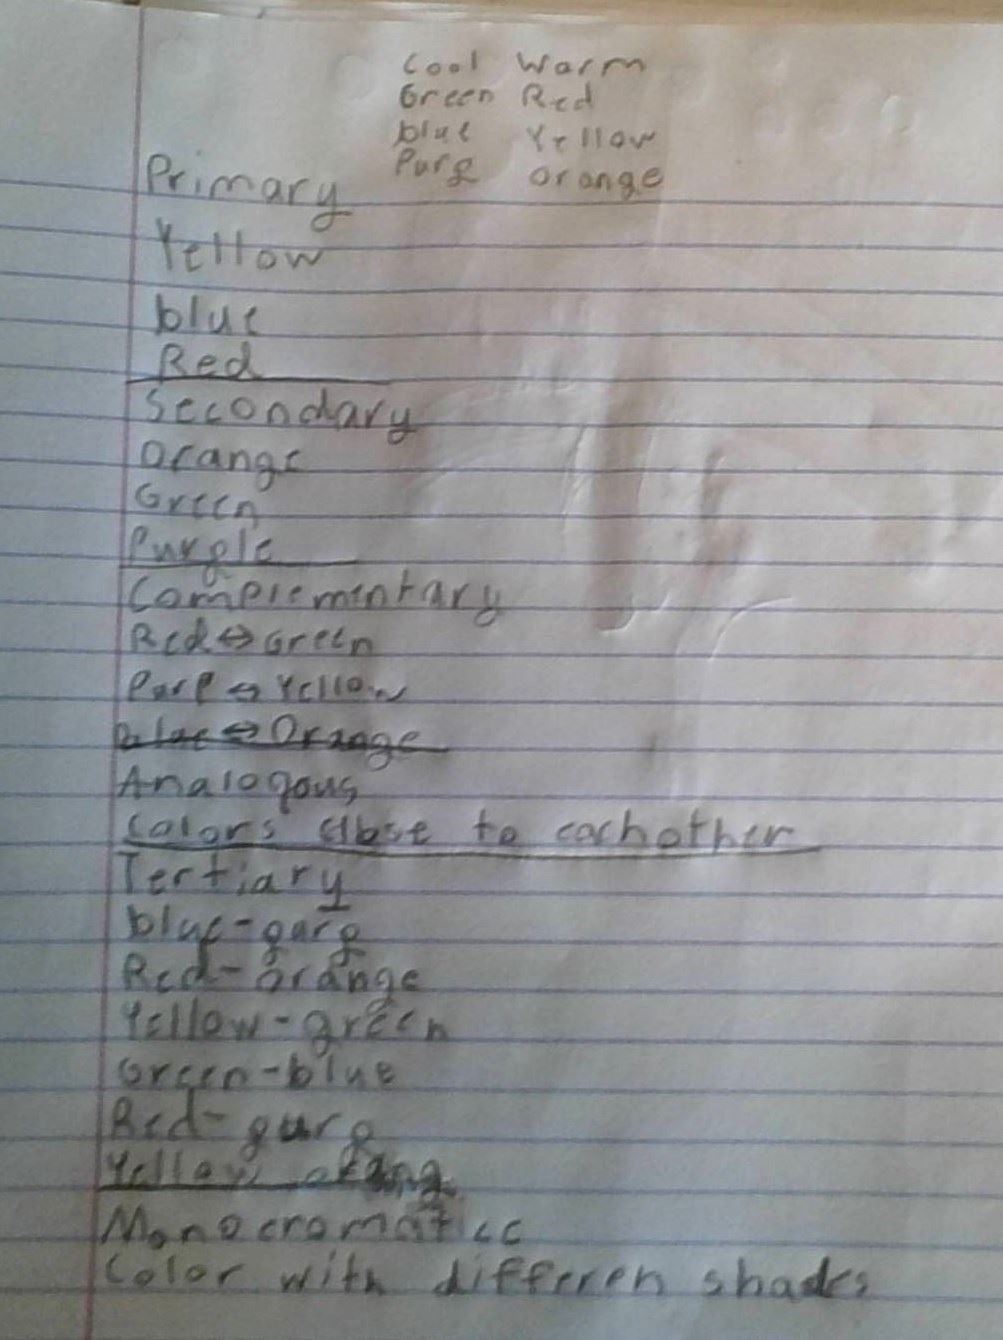 Cool Warm
Green Red
blue Yellow
Purp orange
Primary
Yellow
blue
Red
Secondary
Orange
Green
Purple
Complementary
Red ↔ Green
Purp ↔ Yellow
Blue ↔ Orange
Analogous
Colors close to eachother
Tertiary
blue-purp
Red-orange
Yellow-green
Green-blue
Red-purp
Yellow orang
Monocromaticc
Color with differen shades